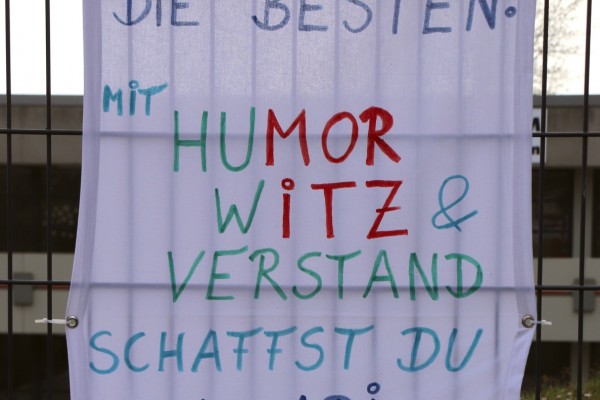 DIE BESTEN.
MiT
HUMOR
WiTZ &
VERSTAND
SCHAFFST DU